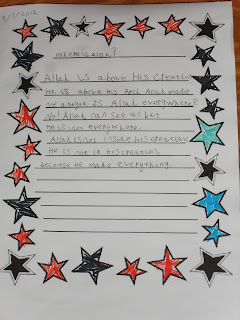 8/1/2012
WHERE IS ALLAH?
Allah is above His creation
He is above His Arsh. Allah made
me and you. Is Allah everywhere?
no! Allah can see us but
He is not everywhere.
Allah is not inside his creation!
He is not in his creation
because He made everything.